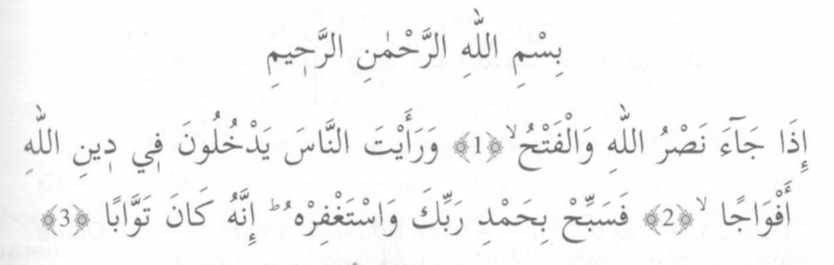 بِسْمِ اللهِ الرَّحْمٰنِ الرَّحِيمِ
إِذَا جَآءَ نَصْرُ اللهِ وَالْفَتْحُ ۙ ﴿1﴾ وَرَأَيْتَ النَّاسَ يَدْخُلُونَ فِي دِينِ اللهِ
أَفْوَاجًا ۙ ﴿2﴾ فَسَبِّحْ بِحَمْدِ رَبِّكَ وَاسْتَغْفِرْهُ ۭ ؕ إِنَّهُ كَانَ تَوَّابًا ﴿3﴾